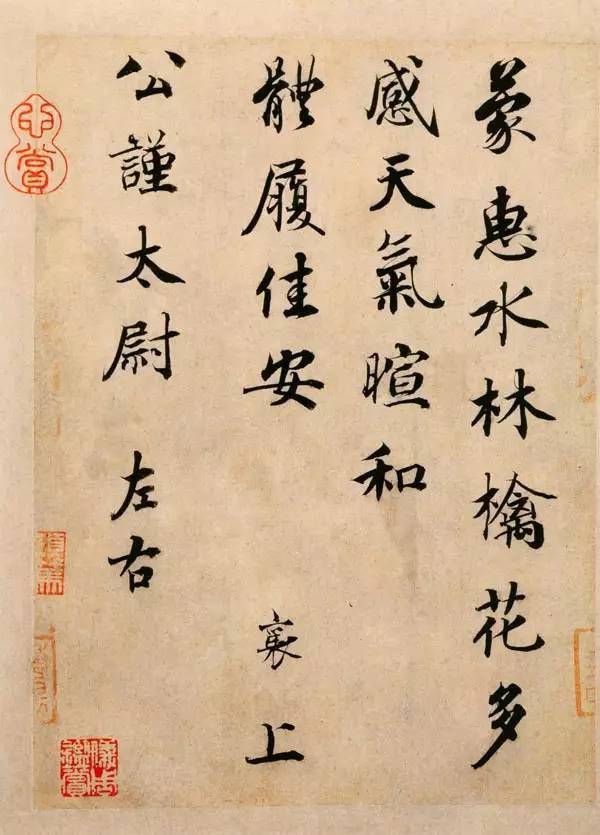 蒙惠水林檎花多
感天氣暄和
體履佳安　襄上
公謹太尉　左右